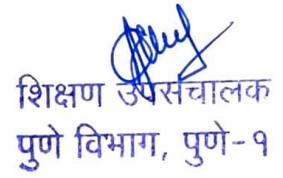 शिक्षण उपसंचालक
पुणे विभाग, पुणे-१